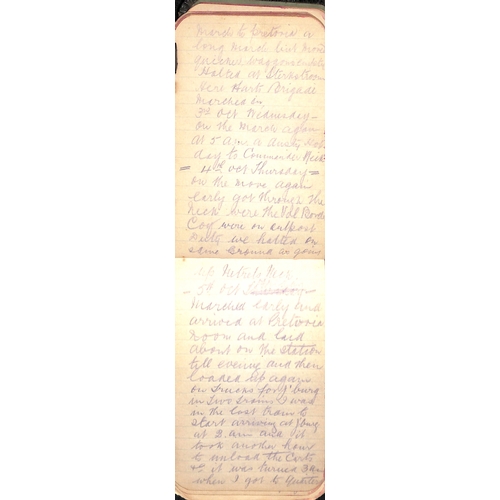 March to Pretoria a
long march but more
queenes waggons on duty
Halted at
Here Harts Brigade
marched in
3rd Oct Wednesday -
on the march again
at 5 a.m. a dusty Hot
day to Commando Neck
= 4th Oct Thursday =
on the move again
early got through the
neck were the Vol Border
Coy were on outpost
Duty we halted on
same ground as going
up
- 5th Oct
Marched early and
arrived at Pretoria
Room and laid
about on the station
till evening and then
loaded up again
on trucks for J'burg
in two trains I was
in the last train to
start arriving at Jburg
at 2 am and it
took another hour
to unload the Carts
&c it was turned 3 am
when I got to